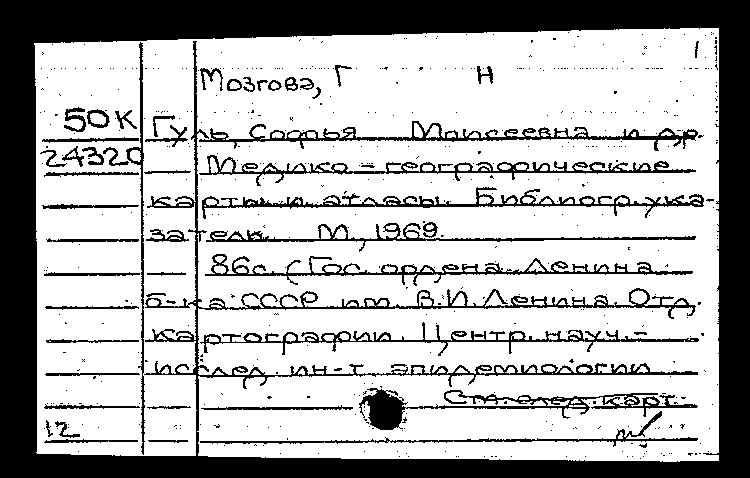 1
Мозгова, Г Н
50К Гуль, Софья Моисеевна и др.
24320 Медико-географические
карты и атласы. Библиогр. ука-
затель. М., 1969.
86с. (Гос. ордена Ленина
б-ка СССР им. В.И. Ленина. Отд.
картографии. Центр. науч.-
исслед. ин-т эпидемиологии
См. след. карт.
12